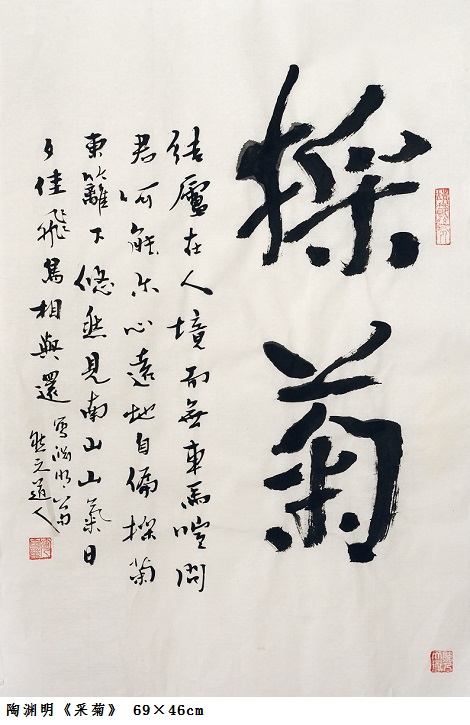 採菊
結廬在人境而無車馬喧問
君何能尔心遠地自偏採菊
東籬下悠然見南山山氣日
夕佳飛鳥相與還
之道人
陶渊明《采菊》 69×46cm